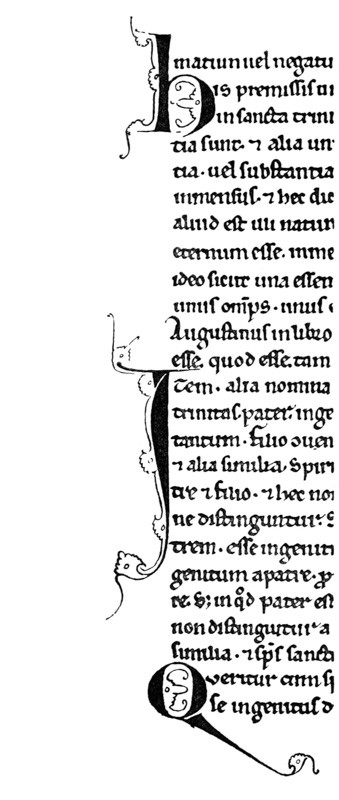 matiun uel negatu
is premissis
in sancta trini
tia sunt. ⁊ alia un
tia. uel substantia
inmensus. ⁊ hec diu
aliud est ui natur
eternum esse. inme
ideo sicut una essen
unus omps. unus
Augustinus in libro
esse. quod esse. tam
Item. alia nomina
trinitas. pater. inge
tantum. filio
⁊ alia similia. Spiri
tre ⁊ filio. ⁊ hec no
ne distinguntur. S
trem. esse ingenit
genitum apatre. ꝓ
re. S; in qd pater est
non distinguitur a
similia. ⁊ sps sancti
Queritur cum sp
se ingenitus d